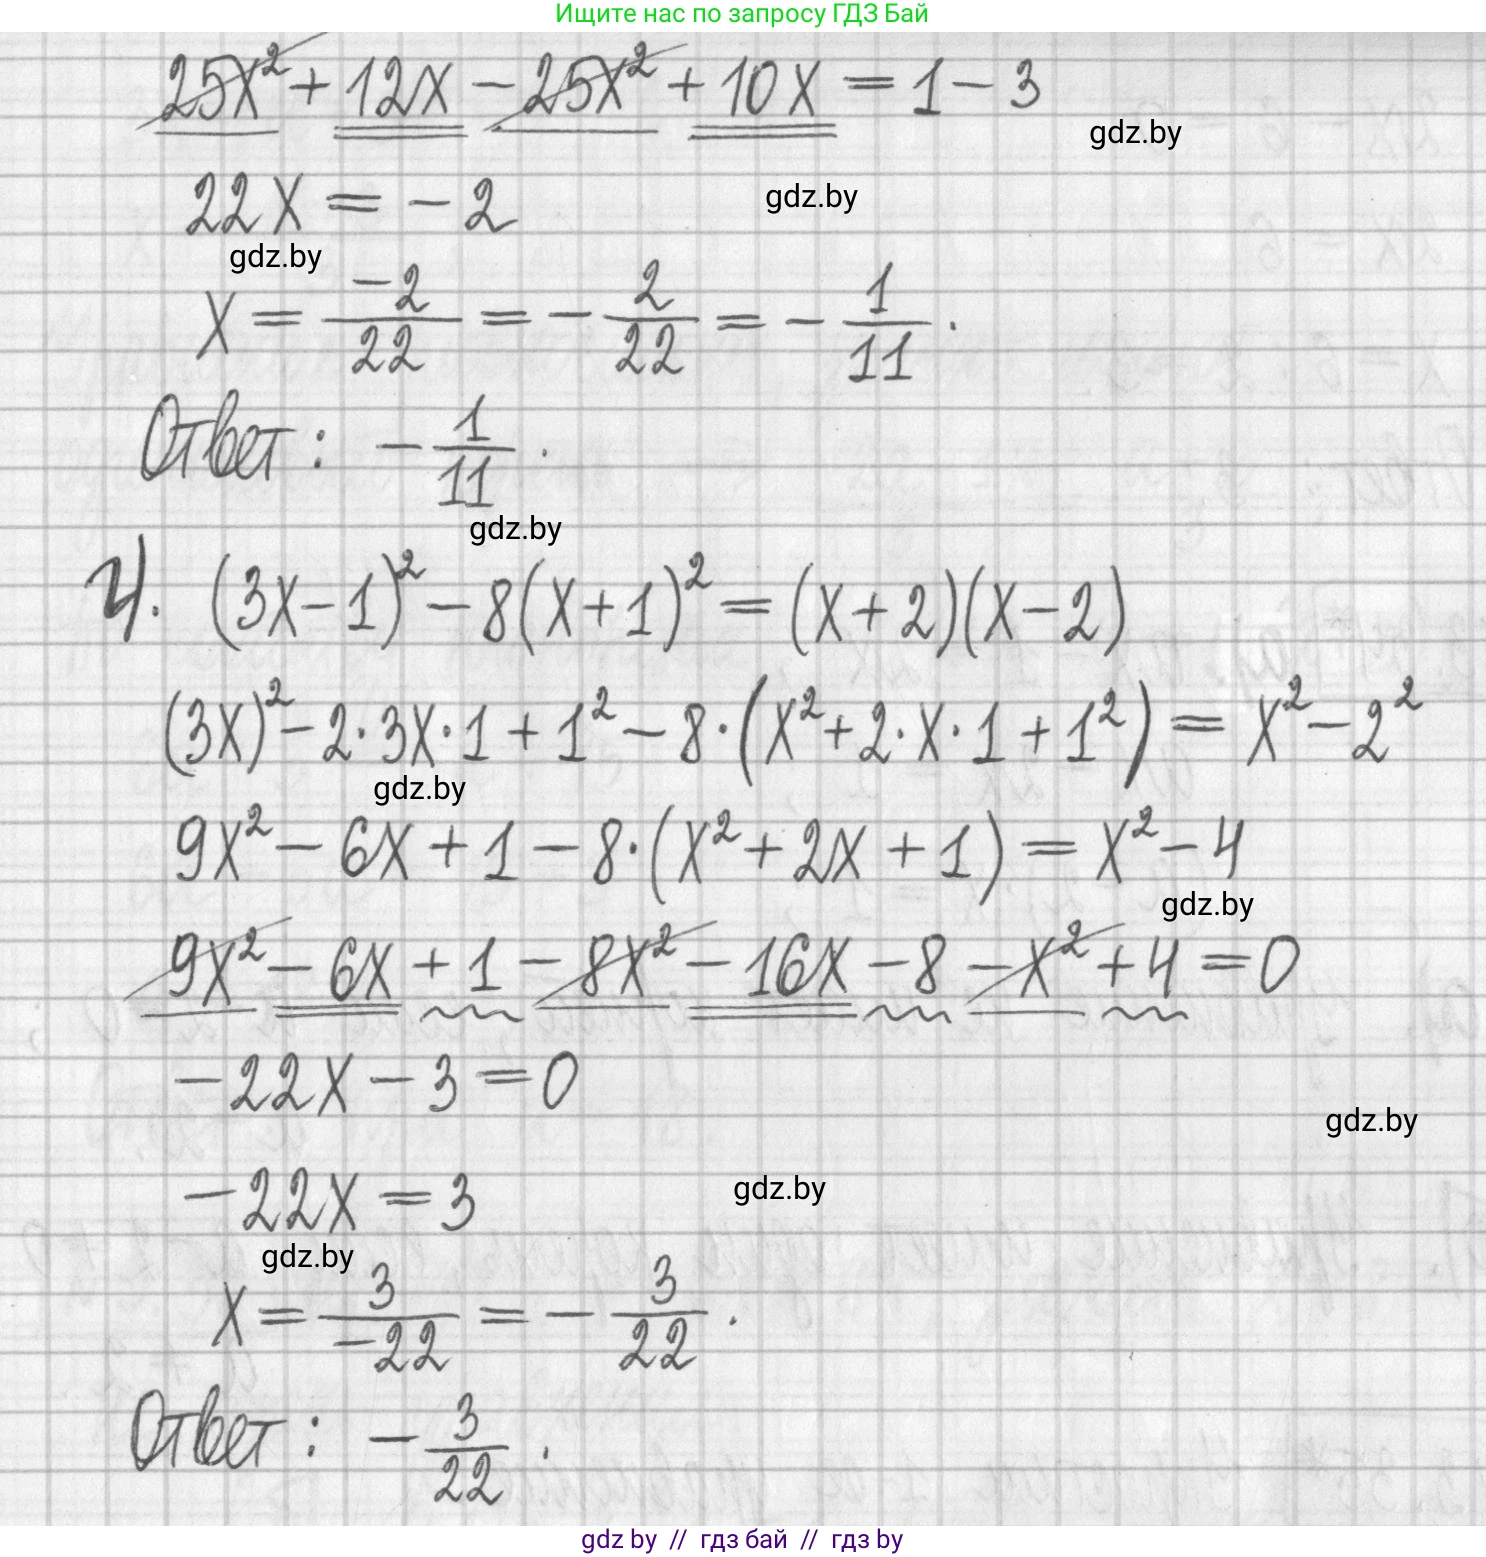 Ищите нас по запросу ГДЗ Бай
25x² + 12x − 25x² + 10x = 1 − 3
gdz.by
22x = −2
gdz.by
gdz.by
x = −2/22 = −2/22 = −1/11.
Ответ: −1/11.
gdz.by
4. (3x−1)² − 8(x+1)² = (x+2)(x−2)
(3x)² − 2·3x·1 + 1² − 8·(x² + 2·x·1 + 1²) = x² − 2²
gdz.by
9x² − 6x + 1 − 8·(x² + 2x + 1) = x² − 4
gdz.by
9x² − 6x + 1 − 8x² − 16x − 8 − x² + 4 = 0
−22x − 3 = 0
gdz.by
−22x = 3
gdz.by
gdz.by
x = 3/−22 = −3/22.
Ответ: −3/22.
gdz.by // гдз бай // гдз by